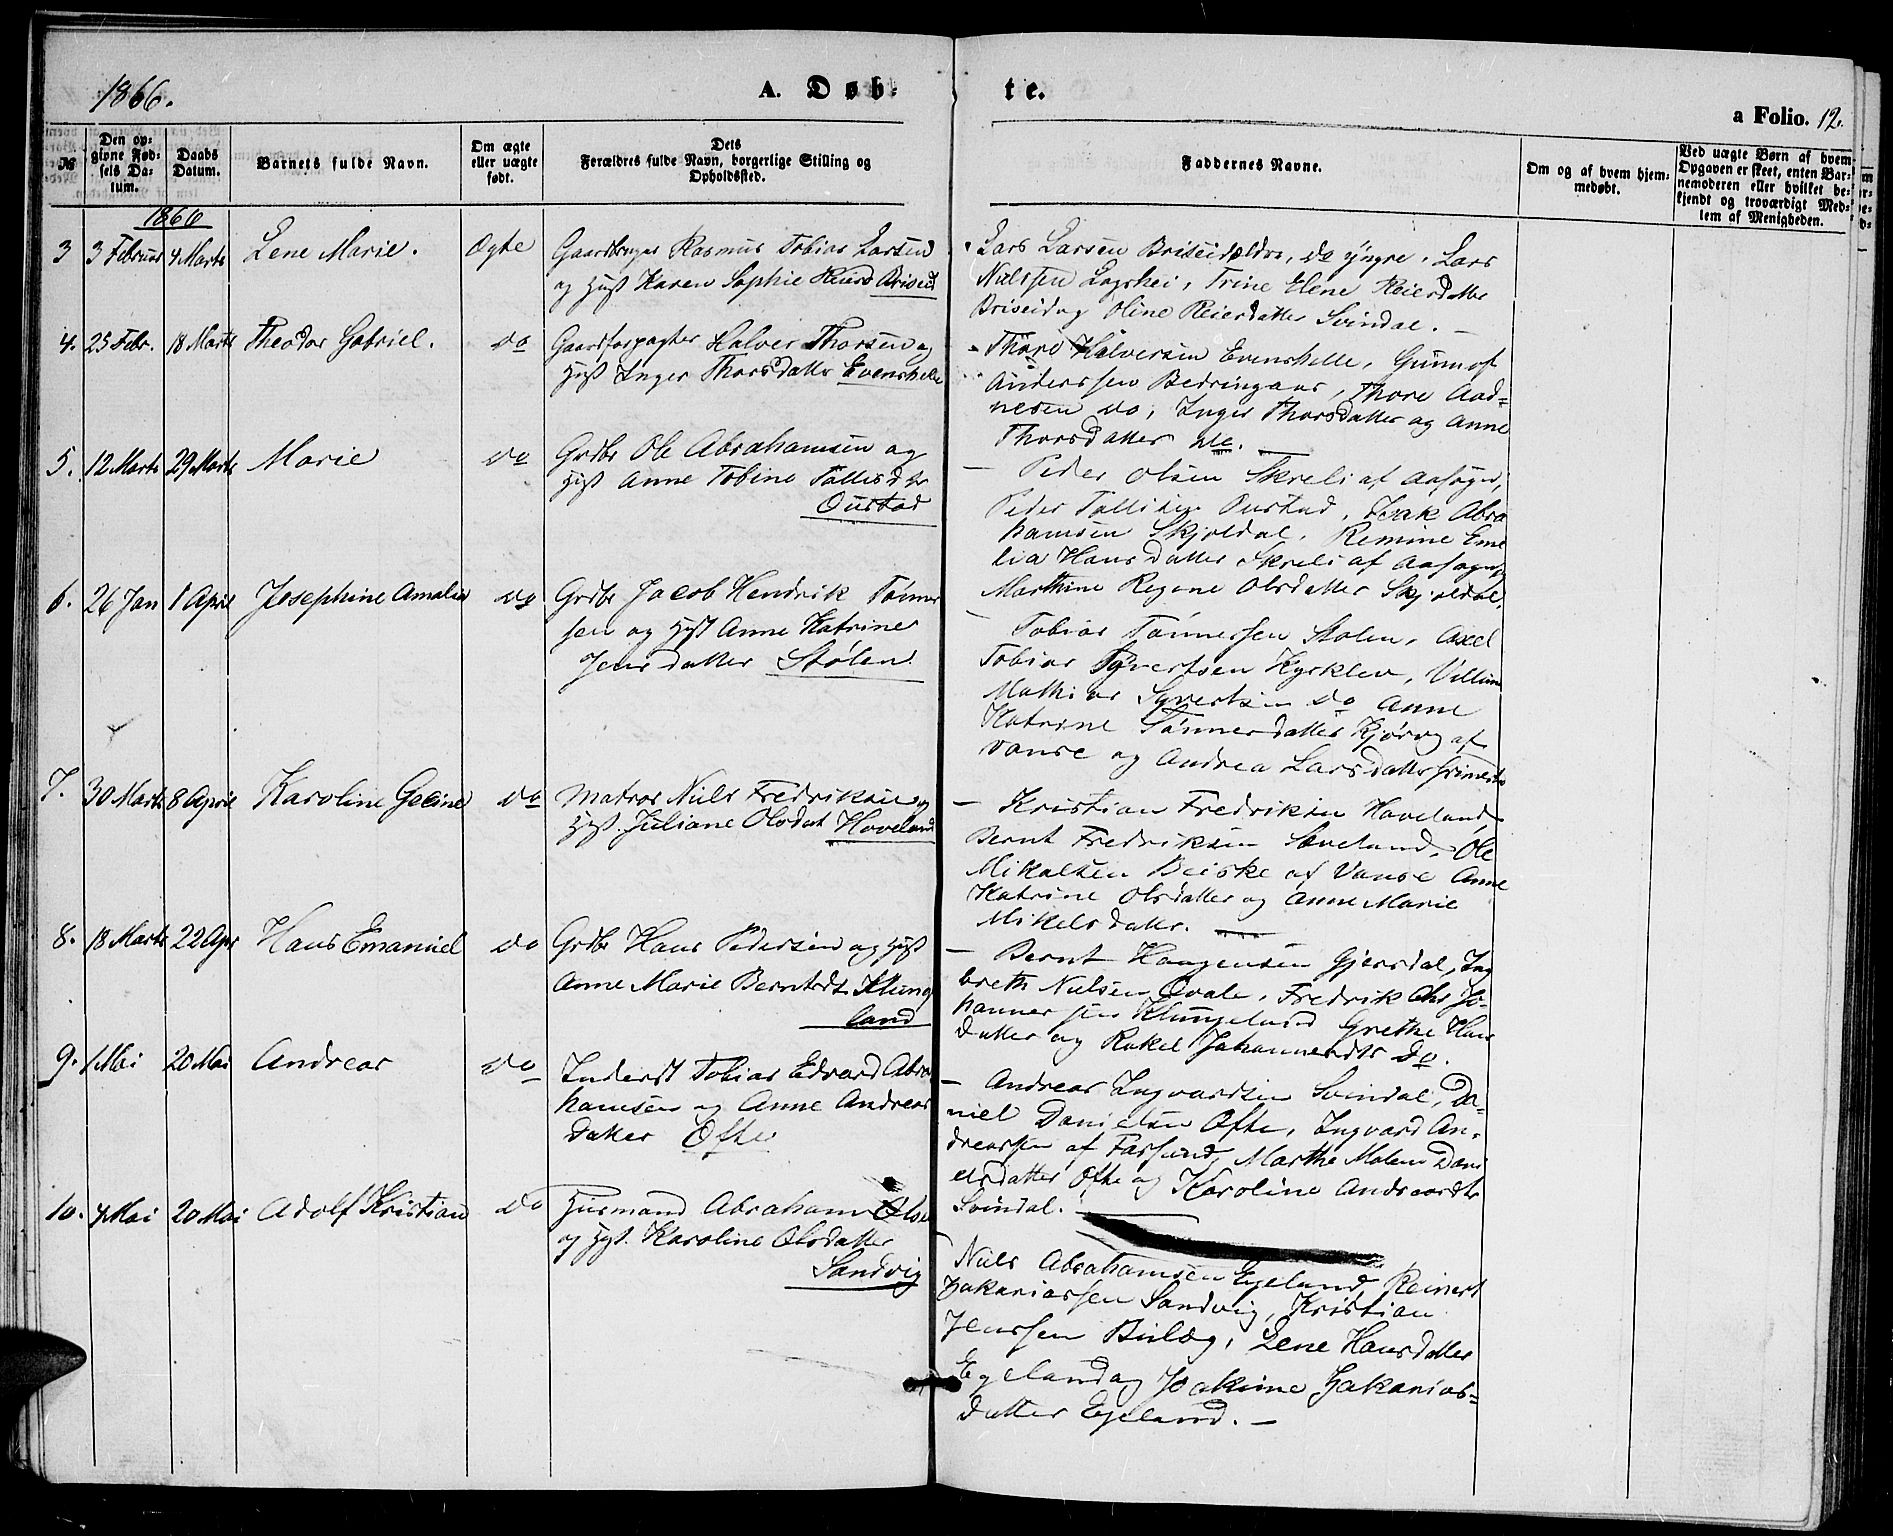 1866.
A. Døb-
te.
a Folio. 12.
№
Den op-
givne Fød-
sels Da-
tum.
Daabs
Datum.
Barnets fulde Navn.
Om ægte
eller uægte
født.
Dets
Forældres fulde Navn, borgerlige Stilling og
Opholdssted.
Faddernes Navne.
Om og af hvem hjem-
medøbt.
Ved uægte Børn af hvem
Opgaven er skeet, enten Bar-
nemoderen eller hvilket be-
kjendt og troværdigt Med-
lem af Menigheden.
1866
3 3 Februar 4 Marts Lene Marie. Ægte Gaardbruger Rasmus Tobias Larsen
og Hust Karen Sophie Reiersd Briseid
Lars Larsen Briseid ældre, do yngre. Lars
Nielssen Log­shei, Trine Elene Reiersdatter
Briseid og Oline Reiersdatter Svindal. —
4. 25 Febr. 18 Marts Theodor Gabriel. do Gaardforpagter Halvor Thorsen og
Hust Inger Thorsdatter Evenshelle
- Thore Halversen Evenshelle, Gunnof
Anderssen Bedringaas, Thore Aad=
nesen do, Inger Thorsdatter og Anne
Thorsdatter do. —
5. 12 Marts 29 Marts Marie do Grdbr Ole Abrahamsen og
Hust Anne Tobine Tallisdtr
Oustad
— Peder Olsen Skreli af Aasogn,
Peder Tallisen Oustad, Isak Abra
hamsen Skjoldal, Remine Eme
lia Hansdatter Skreli af Aasogn,
Marthine Regine Olsdatter Skjoldal.
6. 26 Jan 1 April Josephine Amalia do Grdbr Jacob Hendrik Tønnes
sen og Hust Anne Katrine
Jensdatter Stølen.
— Tobias Tønnessen Stølen, Axel
Tobias Syvertsen Kyrklev, Villum
Mathias Syvertsen do Anne
Katrine Tønnesdatter Kjørvog af
Vanse og Andrea Larsdatter Grimestø
7. 30 Marts 8 April Karoline Geline do Matros Niels Fredriksen og
Hust. Juliane Olsdat Hoveland
— Kristian Fredriksen Haveland
Bernt Fredriksen Sæveland, Ole
Mikalsen Beiske af Vanse Anne
Katrine Olsdatter og Anne Marie
Mikelsdatter. —
8. 18 Marts 22 Apr Hans Emanuel do Grdbr Hans Pedersen og Hust
Anne Marie Berntsdtr Klung
land
— Bernt Haagensen Gjersdal, Ing
breth Nielsen Qvale, Fredrik Chr Jo-
hannessen Klungeland Grethe Hans
datter og Rakel Johannesdtr do.
9. 1 Mai 20 Mai Andreas do Inderst Tobias Edvard Abra
hamsen og Anne Andreas
datter Øfte.
— Andreas Ingvardsen Svindal, Da-
niel Danielsen Øfte, Ingvard An-
dreassen af Farsund, Marthe Malene Dani
elsdatter Øfte og Karoline Andreasdtr
Svindal.
10. 4 Mai 20 Mai Adolf Kristian do Husmand Abraham Olsen
og Hust. Karoline Olsdatter
Sandvig
Niels Abrahamsen Egeland, Reinert
Zakariassen Sandvig, Kristian
Jenssen Bulæg, Lene Hansdatter
Egeland og Joakime Zakarias=
datter Egeland. —